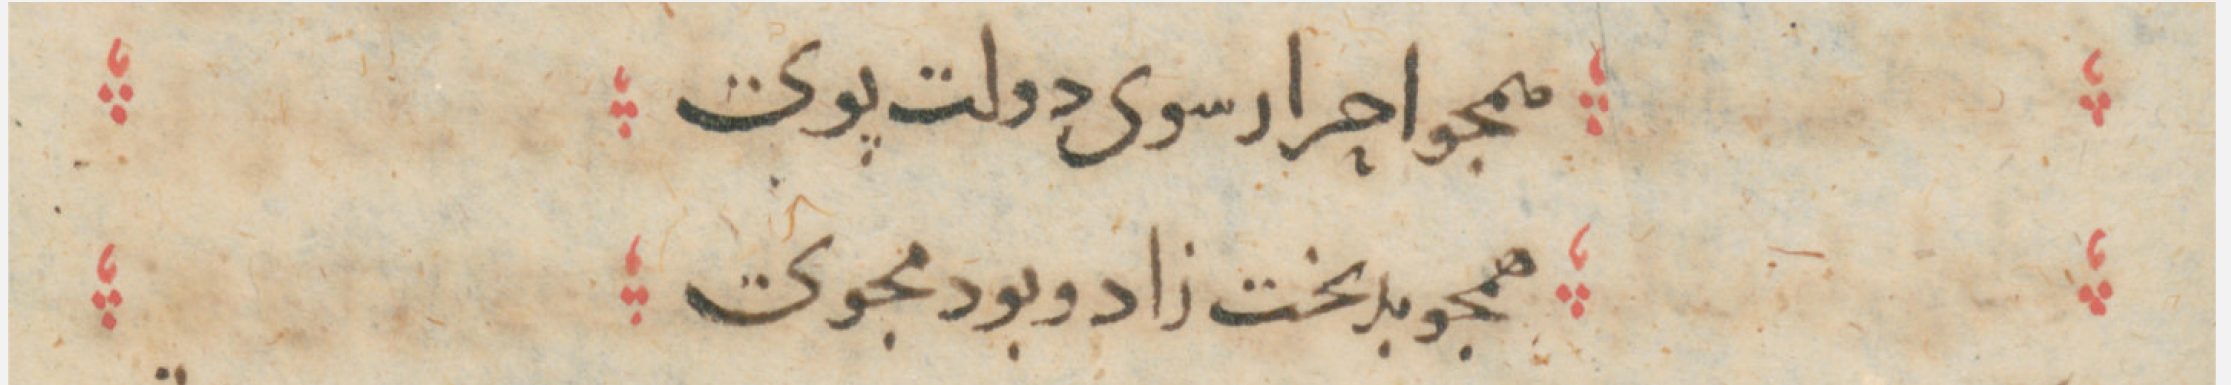 همجو احرار سوی دولت پوی
همجو بدبخت زاد و بود مجوی